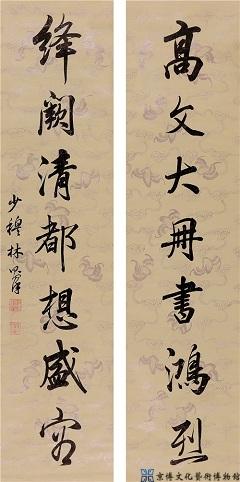 高文大册書鴻烈
絳闕清都想盛容
少穆林則徐
京博文化藝術博物館